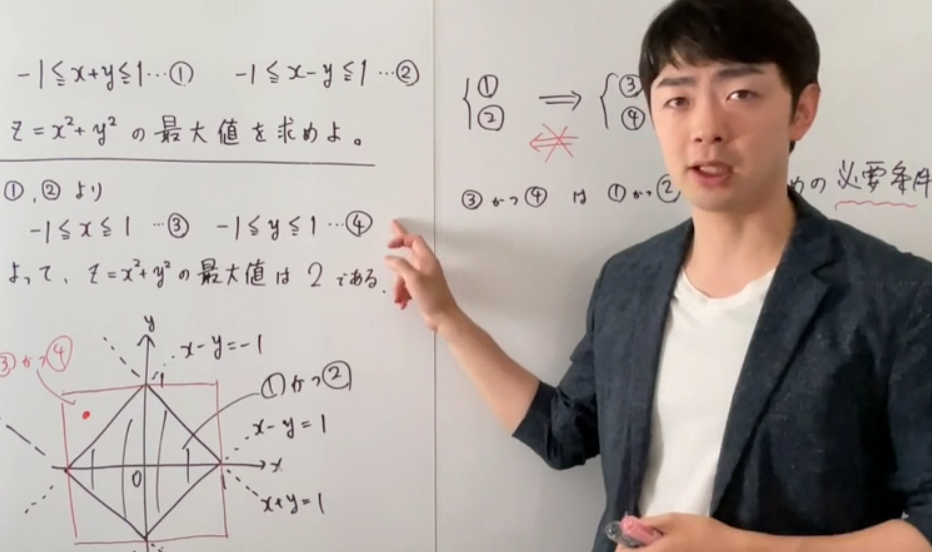 -1≦x+y≦1…① -1≦x-y≦1…②
z=x²+y² の最大値を求めよ。
①、②より
-1≦x≦1…③ -1≦y≦1…④
よって、z=x²+y²の最大値は2である.
③かつ④
y
x-y=-1
1
①かつ②
x-y=1
1
0
x
x+y=1
{① ② ⟹ {③ ④
⟸
③かつ④は①かつ②
の必要条件